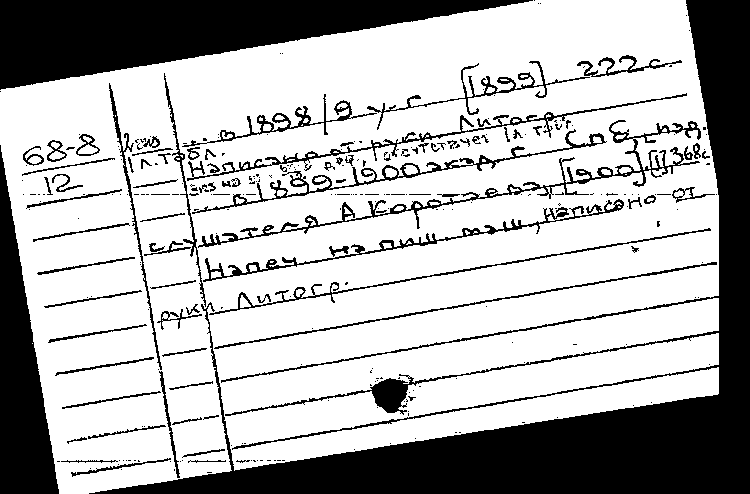 ... в 1898/9 у. г. [1899]. 222 с.
68-8
12
1 л. табл.
Написано от руки. Литогр.
отсутствует 1 л. табл.
... в 1899-1900 акад. г. Спб., изд.
слушателя А Коротаева, [1900]. 368 с.
Напеч. на пиш. маш., написано от
руки. Литогр.